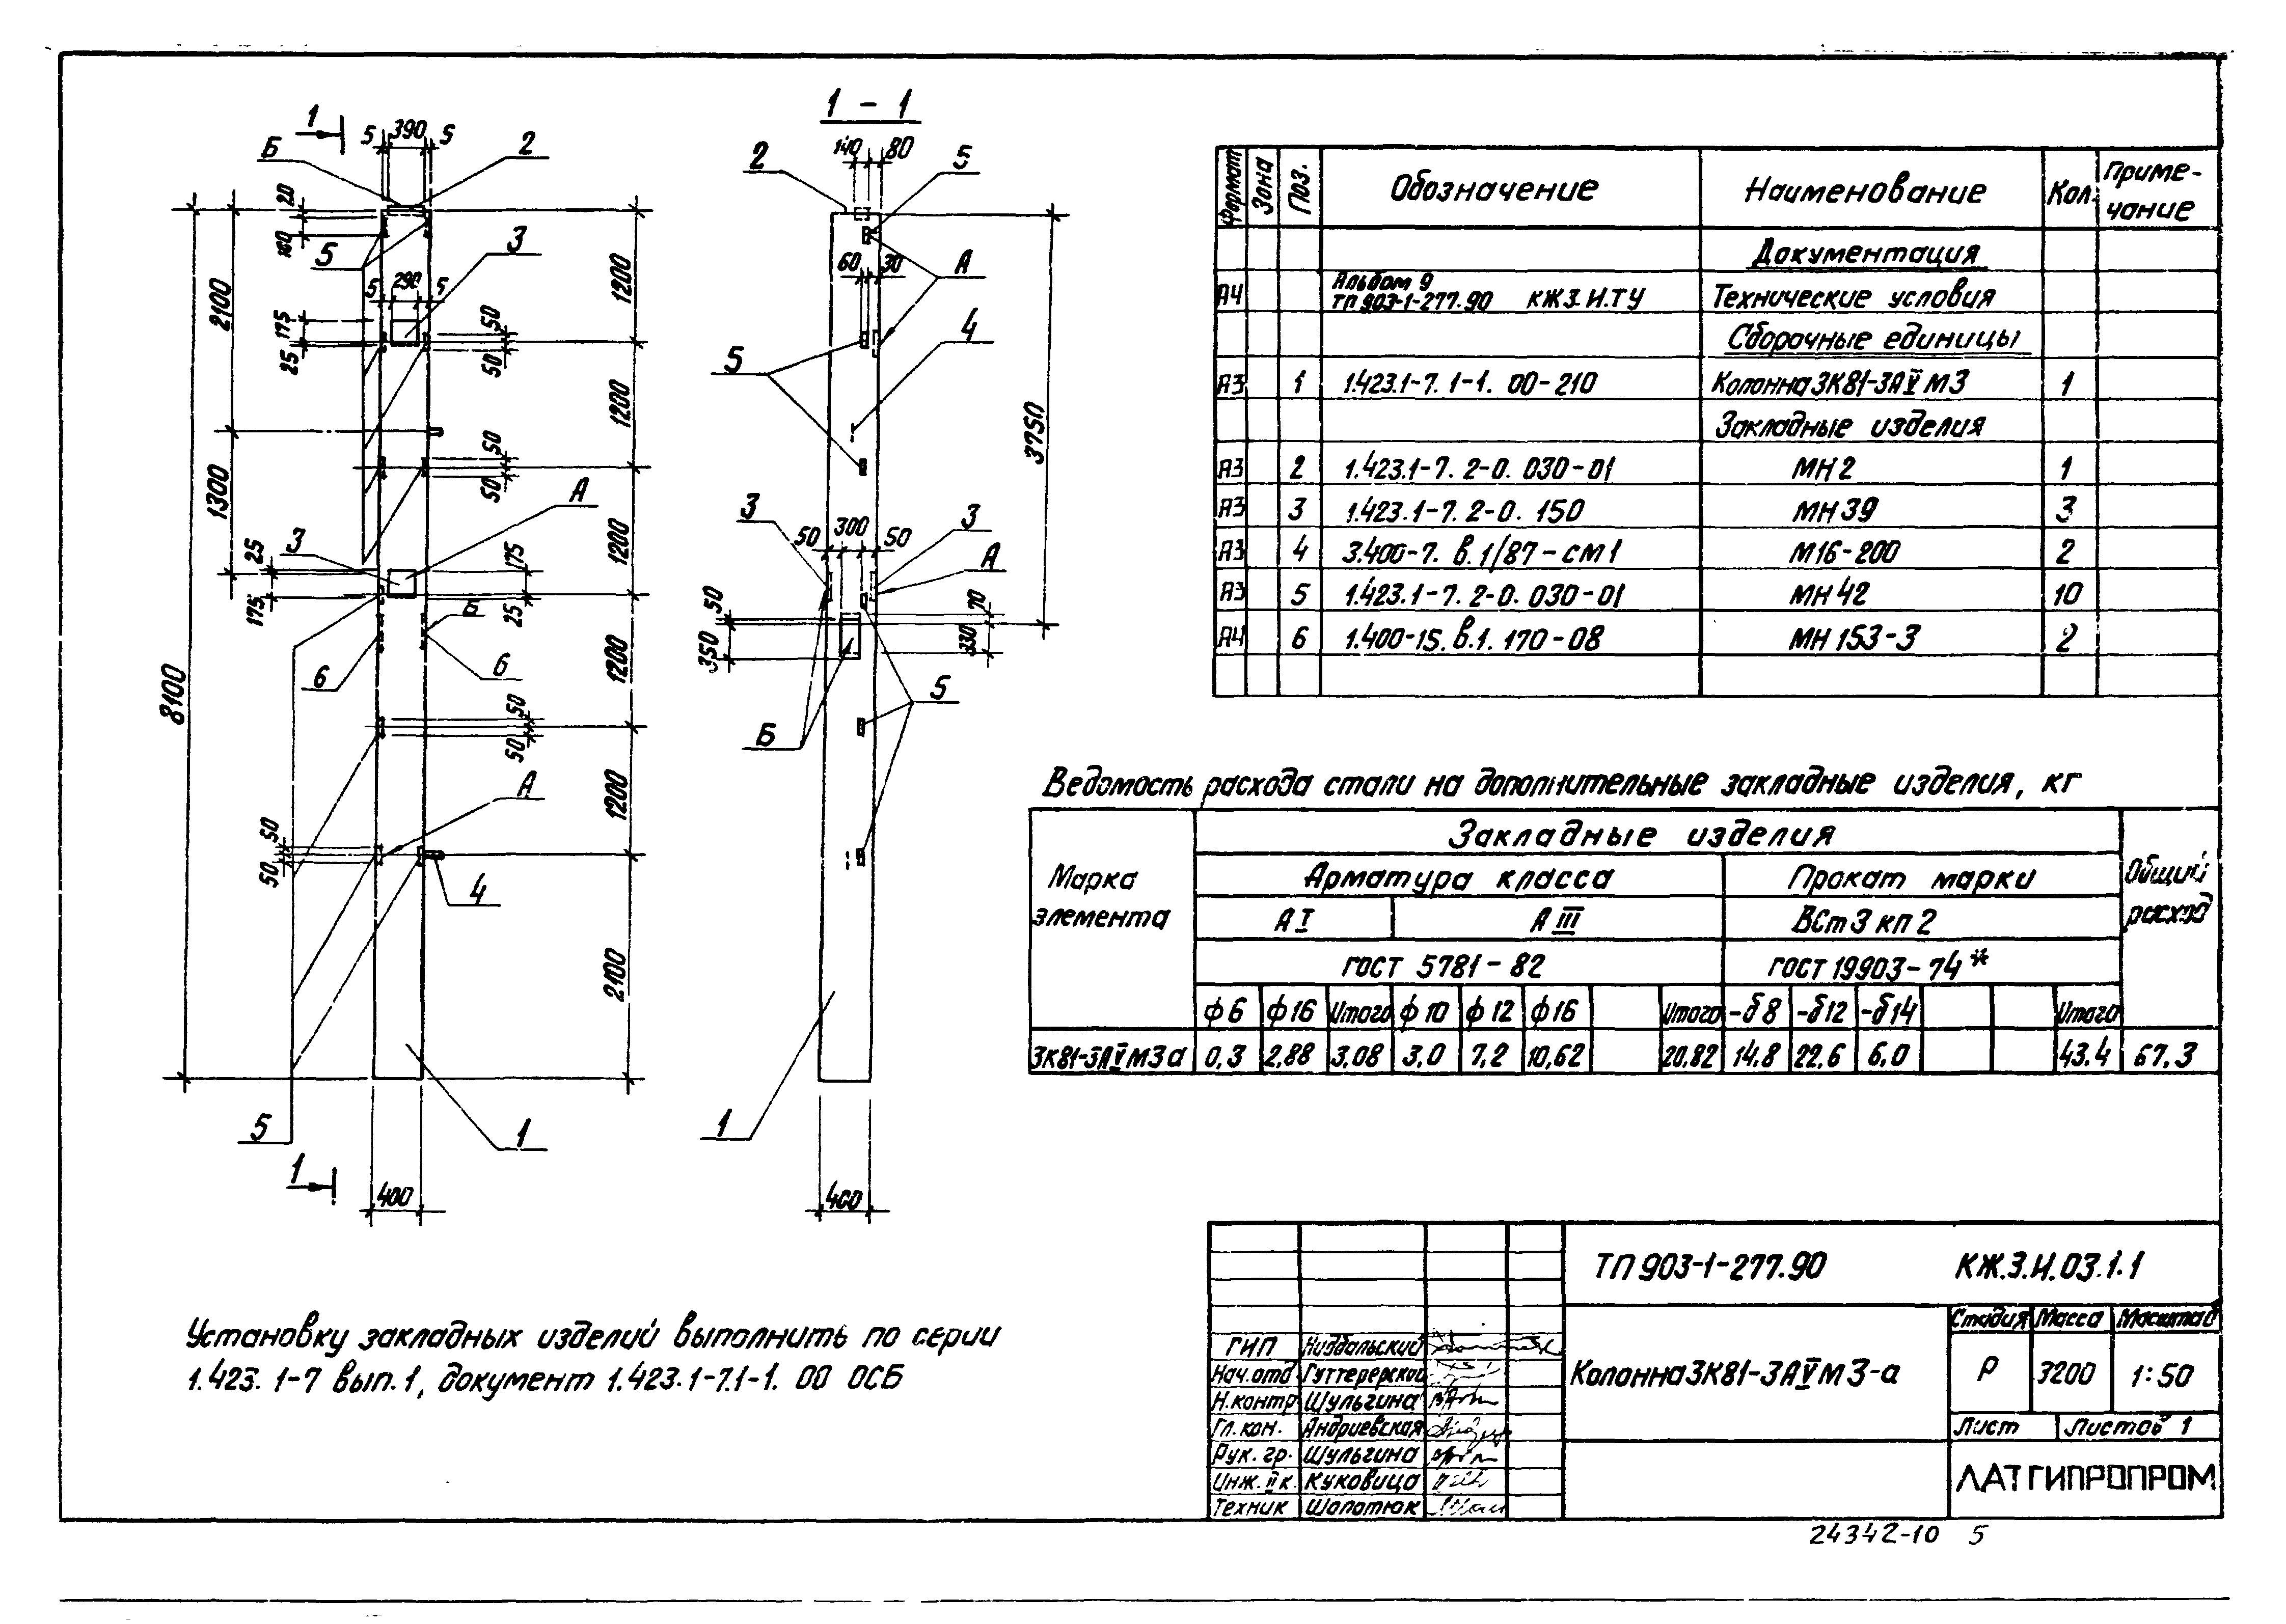 1
5 390 5
Б
2
20
160
5
3
5 290 5
175
25
50
50
2100
1200
1200
50
50
1300
А
3
25
175
175
25
1200
Б
6
6
1200
50
50
8100
А
1200
50
50
4
2100
5
1
1
400
1 - 1
140 80
2
5
60 30
А
4
5
3750
3
50 300 50
3
А
50
350
70
330
5
Б
1
400
Формат Зона Поз. Обозначение Наименование Кол. Приме-
чание
Документация
А4 Альбом 9
ТП 903-1-277.90 КЖ3.И.ТУ Технические условия
Сборочные единицы
А3 1 1.423.1-7. 1-1. 00-210 Колонна 3К81-3АV М3 1
Закладные изделия
А3 2 1.423.1-7. 2-0. 030-01 МН 2 1
А3 3 1.423.1-7. 2-0. 150 МН 39 3
А3 4 3.400-7. в.1/87-см1 М16-200 2
А3 5 1.423.1-7. 2-0. 030-01 МН 42 10
А4 6 1.400-15. в.1. 170-08 МН 153-3 2
Ведомость расхода стали на дополнительные закладные изделия, кг
Марка
элемента
Закладные изделия
Общий
расход
Арматура класса Прокат марки
А I А III ВСт 3 кп 2
ГОСТ 5781-82 ГОСТ 19903-74*
ф6 ф16 Итого ф10 ф12 ф16 Итого -δ8 -δ12 -δ14 Итого
3К81-3АVМ3а 0,3 2,88 3,08 3,0 7,2 10,62 20,82 14.8 22,6 6,0 43.4 67.3
Установку закладных изделий выполнить по серии
1.423. 1-7 вып. 1, документ 1.423.1-7.1-1. 00 0СБ
ТП 903-1-277.90 КЖ.3.И.03.1.1
Колонна 3К81-3АVМ3-а
Стадия Масса Масштаб
Р 3200 1:50
Лист Листов 1
ЛАТГИПРОПРОМ
ГИП
Нач.отд
Н.контр Шульгина
Гл.кон. Андриевская
Рук. гр. Шульгина
Инж. II к. Куковица
Техник Шалатюк
24342-10 5